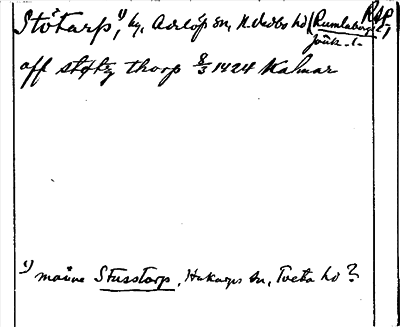 Stötarp,¹⁾ by, Aerlöf sn, N. Vedbo hd (Rumlaborgs RAP,
Jönk. l.
aff støtz thorp 8/3 1424 Kalmar
¹⁾ månne Stusstorp, Hakarps sn, Tveta hd?